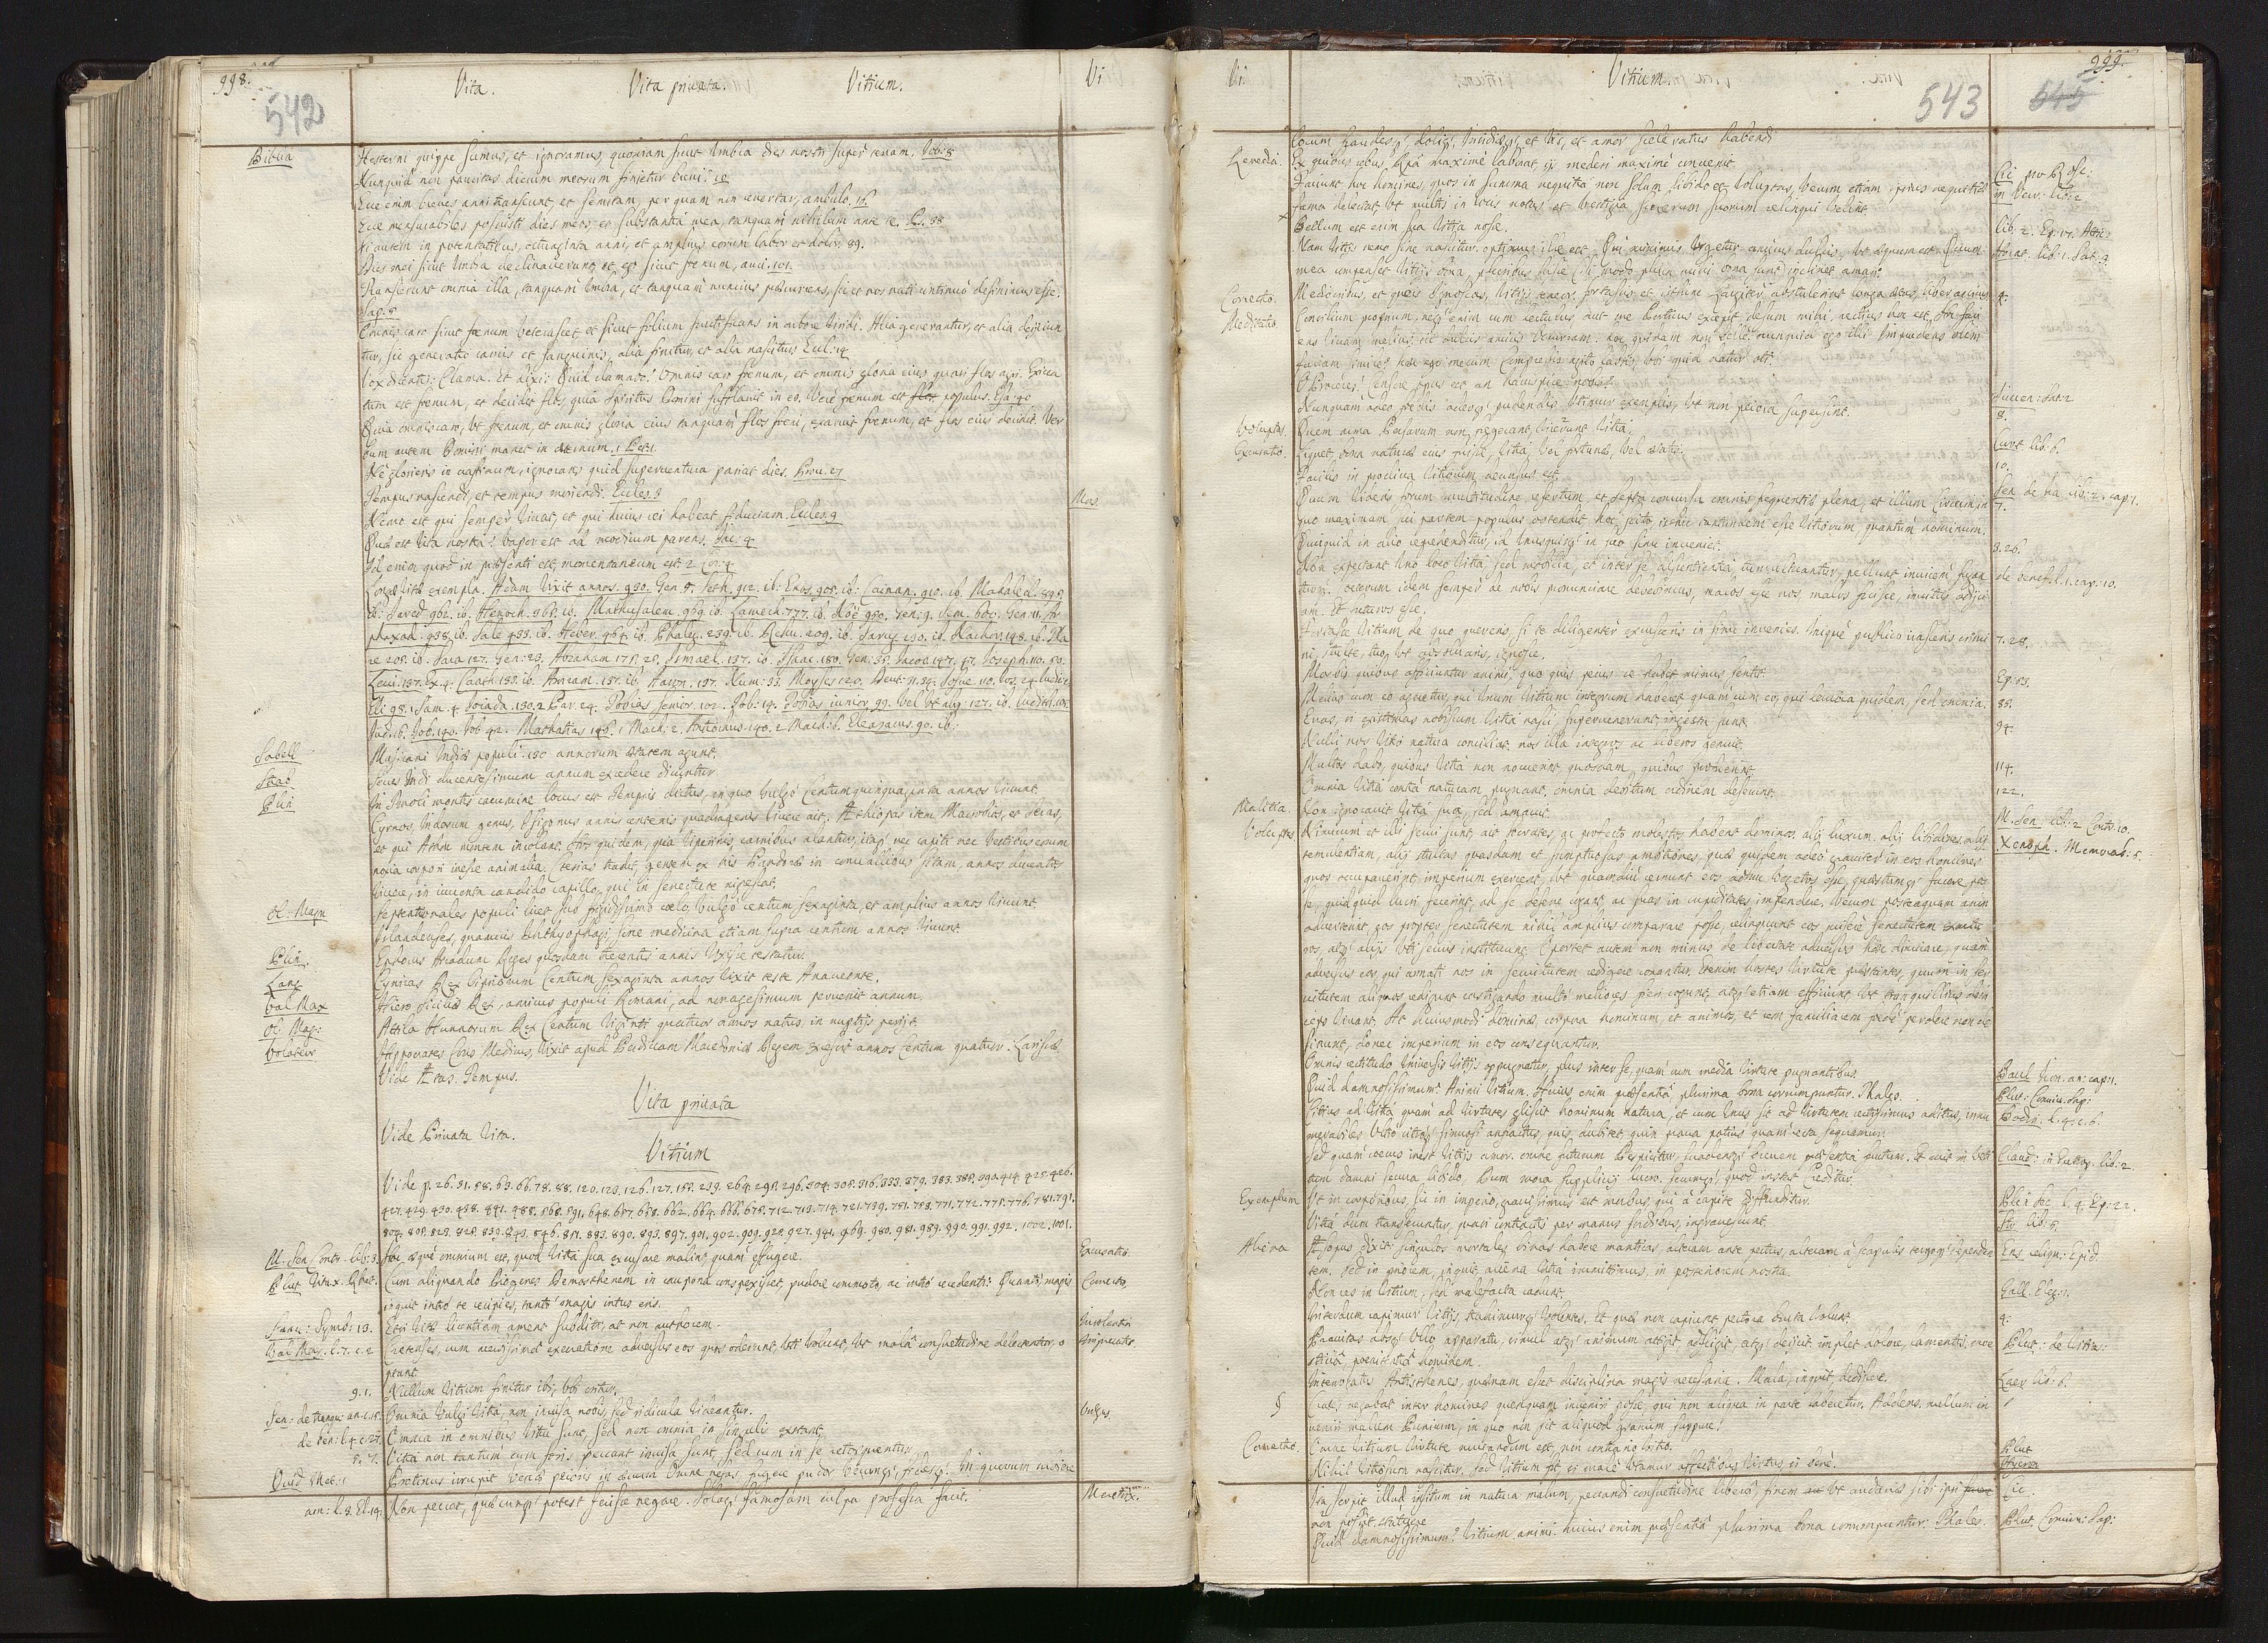 998.
542
Vita. Vita priuata. Vitium. Vi
Biblia Hesterni quippe sumus, et ignoramus, quoniam sicut Vmbra dies nostri super terram. Job: 8
Nunquid non paucitas dierum meorum finietur breui? 10
Ecce enim breues anni transeunt, et semitam, per quam non reuertar, ambulo. 16
Ecce mensurabiles posuisti dies meos, et substantia mea, tanquam nihilum ante te. Ps. 38
Si autem in potentatibus, octuaginta anni, et amplius eorum labor et dolor. 89.
Dies mei sicut Vmbra declinauerunt, et ego sicut foenum, arui. 101.
Transierunt omnia illa, tanquam Vmbra, et tanquam nuncius percurrens, sic et nos nati continuò desiuimus esse.
Sap: 5
Omnis caro sicut foenum veterascet, et sicut folium fructificans in arbore viridi. Alia generantur, et alia deijciun
tur, sic generatio carnis et sanguinis, alia finitur, et alia nascitur Eccl: 14
Vox dicentis: Clama. Et dixi: Quid clamabo? Omnis caro foenum, et omnis gloria eius quasi flos agri. Exicca
tum est foenum, et decidit flos, quia Spiritus Domini sufflauit in eo. Verè foenum est populus. Esa: 40
Quia omnis caro, vt foenum, et omnis gloria eius tanquam flos foeni, exaruit foenum, et flos eius decidit. Ver
bum autem Domini manet in aeternum. 1 Pet: 1.
Ne glorieris in crastinum, ignorans quid superuentura pariat dies. Prou. 27
Tempus nascendi, et tempus moriendi. Eccles. 3 Mors.
Nemo est qui semper Viuat, et qui huius rei habeat fiduciam. Eccles. 9
Quae est Vita nostra? Vapor est ad modicum parens. Jac: 4
Id enim quod in praesenti est, momentaneum est. 2 Cor: 4
Longae vitae exempla. Adam Vixit annos. 930. Gen. 5. Seth. 912. ib: Enos. 905. ib: Cainan. 910. ib. Malaleel. 895.
ib: Jared. 962. ib. Henoch. 365. ib. Mathusalem. 969. ib. Lamech. 777. ib. Noë 950. Gen: 9. Sem. 600. Gen: 11. Ar
phaxad. 438. ib. Sale 433. ib. Heber. 464. ib. Phaleg. 239. ib. Rehu. 209. ib. Sarug 230. ib. Nachor. 148. ib. Tha
re 205. ib. Sara 127. Gen: 23. Abraham 175. 25. Ismael. 137. ib. Isaac. 180. Gen: 35. Jacob. 147. 47. Joseph. 110. 50.
Leui. 137. Ex. 6. Caath 133. ib. Amram. 137. ib. Aaron. 123. Num: 33. Moyses 120. Deut: 31. 34. Josue 110. Jos. 24. Judic: 2
Eli 98. 1 Sam. 4. Joiada. 130. 2 Par. 24. Tobias senior. 102. Tob: 14. Tobias iunior. 99. vel vt alij: 127. ib. Judith. 105.
Jud: 16. Job. 140. Job 42. Mathatias 146. 1 Mach. 2. Antiochus. 149. 2 Mach: 6. Eleazarus. 90. ib:
Sabell populi. 130 annorum aetatem agunt.
Strab Seres Indi ducentesimum annum excedere dicuntur
Plin In Tmoli montis cacumine locus est Tempsis dictus, in quo Vulgò Centum quinquaginta annos Viuunt
Cyrnos, Indorum genus, Isigonus annis centenis quadragenis Viuere ait. Aethiopas item Macrobios, et Seras,
et qui Athon montem incolunt. Hos quidem, quia Viperinis carnibus alantur, itaque nec capiti nec vestibus eorum
noxia corpori inesse animalia. Ctesias tradit, gentem ex his Pandorae in conuallibus sitam, annos ducentos
Viuere, in iuuenta candido capillo, qui in senectute nigrescat.
Ol: Magn Septentrionales populi licet sub frigidissimo caelo, Vulgò centum sexaginta, et amplius annos Viuunt
Islandenses, quamuis Ichthyophagi, sine medicina etiam supra centum annos Viuunt.
Plin. Ephorus Arcadum Reges quosdam trecentis annis Vixisse testatur.
Lang Cyniras Rex Cipriorum Centum sexaginta annos Vixit teste Anacreonte.
Val Max Hiero Siciliae Rex, amicus populi Romani, ad nonagesimum peruenit annum.
Ol. Mag: Attila Hunnorum Rex Centum Viginti quatuor annos natus, in nuptijs perijt.
Volater Hippocrates Cous Medicus, Vixit apud Perdiccam Macedoniae Regem annos Centum quatuor. Larissae
Vide Aetas. Tempus.
Vita priuata
Vide Priuata Vita.
Vitium
Vide p. 26. 31. 58. 63. 66. 78. 88. 120. 123. 126. 127. 155. 239. 264. 295. 296. 304. 305. 316. 333. 379. 383. 385. 390. 414. 425. 426.
427. 429. 430. 458. 481. 488. 568. 591. 648. 657. 658. 662. 664. 666. 675. 712. 713. 714. 721. 739. 751. 753. 771. 772. 775. 776. 781. 791.
804. 805. 823. 828. 839. 843. 846. 851. 883. 890. 893. 897. 901. 902. 909. 925. 927. 941. 969. 980. 981. 989. 990. 991. 992. 1002. 1001.
M. Sen. Contr. lib: 3 Hoc aequè omnium est, quod Vitia sua excusare malint quam effugere. Excusatio
Plut. Cum aliquando Diogenes Demosthenem in caupona conspexisset, pudore commoto, ac introrecedenti: Quantò magis Correctio
inquit intro te recipies, tantò magis intus eris.
Symb: 13. Etsi Vitae licentiam ament subditi, at non authorem.
Val Max. l. 7. c. 2 Cretenses, cum acerbissima execratione aduersus eos quos oderunt, Vti Volunt, Vt mala consuetudine delectentur, o Imprecatio.
ptant.
9. 1. Nullum Vitium finitur ibi, Vbi oritur.
Sen: de tranqu: an: c. 15. Omnia Vulgi Vitia, non inuisa nobis, sed ridicula Videantur. Vulgus.
de ben: l. 4. c. 27. Omnia in omnibus Vitia sunt, sed non omnia in singulis extant.
Vitia non tantùm cum foris peccant inuisa sunt, sed cum in se retorquentur.
Ouid Met: 1 Protinus irrupit Venae peioris in aeuum Omne nefas, fugere pudor Verumque, fidesque. In quorum subiere
am: l. 3. El. 14. Non peccat, quaecunque potest peccasse negare. Solaque famosam culpa professa facit. Meretrix.
Vi. Vitium. 999.
543 545
locum fraudesque, dolique, Insidiaeque, et Vis, et amor sceleratus habendi
Remedia. Ex quibus rebus Resp. maximè laborat, ijs mederi maximè conuenit. Cic pro Rosc:
Faciunt hoc homines, quos in summa nequitia non solum libido et Voluptas, Verum etiam ipsius nequitiae in Verr. lib: 2
fama delectat, Vt multis in locis notas et Vestigia scelerum suorum relinqui velint.
Bellum est enim sua Vitia nosse. lib. 2. Ep. 17. Attic:
Nam Vitijs nemo sine nascitur. optimus ille est, Qui minimis Vrgetur. amicus dulcis, Vt aequum est, Cum Horat. lib: 1. Sat: 3.
mea compenset Vitijs bona, pluribus hisce (Si modo plura mihi bona sunt) inclinet amari.
Correctio. Mediocribus, et queis ignoscas, Vitijs teneor. fortassis et isthinc Largiter abstulerint longa aetas, liber amicus, 4.
Meditatio. Consilium proprium, neque enim cum lectulus aut me Porticus excepit desum mihi, rectius hoc est, Hoc faci
ens Viuam melius, sic dulcis amicis Occurram. hoc quidam non bellè. nunquid ego illi Imprudens olim
faciam simile? haec ego mecum Compressis agito labris, Vbi quid datur oti.
O Proceres! Censore opus est an haruspice nobis? Juuen: Sat: 2
Nunquam adeo foedis adeoque pudendis Vtimur exemplis, Vt non peiora supersint. 8.
Voluptas. Quem arma Persarum non fregerant, Vicerunt Vitia. Curt. lib: 6.
Excusatio. Liquet, bona naturae eius fuisse, Vitia, Vel fortunae, Vel aetatis. 10.
Facilis in procliua Vitiorum decursus est. Sen de Ira. lib: 2. cap: 1.
Quum Videris forum multitudine refertum, et Septa concursu omnis frequentiae plena, et illum Circum, in 7.
quo maximam sui partem populus ostendit, hoc scito, isthic tantundem esse Vitiorum, quantum hominum.
Quicquid in alio reprehenditur, id Vnusquisque in suo sinu inueniet. 3. 26.
Non expectant Vno loco Vitia, sed mobilia, et inter se dissentientia tumultuantur, pellunt inuicem fugan de benef. l. 1. cap: 10.
tur. Ceterum idem semper de nobis pronunciare debebimus, malos esse nos, malos fuisse, inuitus adijci
am. Et futuros esse.
Fortasse Vitium de quo quereris, si te diligenter excusseris in sinu inuenies. Iniquè publico irasceris crimi 7. 28.
ni, stulte, tuo, Vt absoluaris, ignosce.
Morbis quibus afficiuntur animi, quo quis peius se habet minus sentit. Ep: 53.
Melius cum eo ageretur, qui Vnum Vitium integrum haberet quam cum eo, qui leuiora quidem, sed omnia. 85.
Erras, si existimas nobiscum Vitia nasci, superuenerunt, ingesta sunt. 94.
Nulli nos Vitio natura conciliat, nos illa integros ac liberos genuit.
Multos dabo, quibus Vitia non nocuerint, quosdam, quibus profuerint. 114.
Omnia Vitia contra naturam pugnant, omnia debitum ordinem deserunt. 122.
Malitia. Non ignorauit Vitia sua, sed amauit. M. Sen. lib: 2 Contr. 10.
Voluptas. Nimirum et illi serui sunt, ait Socrates, ac profecto molestos habent dominos, alij luxum, alij libidines, alij Xenoph. Memorab: 5.
temulentiam, alij stultas quasdam et sumptuosas ambitiones, quae quippe adeò grauiter in eos homines
quos occupauerint, imperium exercent, Vt quamdiu cernunt eos adhuc Vegetos esse, quaestumque facere pos
se, quicquid lucri fecerint, ad se deferre cogant, ac suas in cupiditates impendere. Verum posteaquam anim
aduertunt, eos propter senectutem nihil amplius comparare posse, relinquunt eos miserè senectutem
ros, atque alijs Vti seruis instituunt. Oportet autem non minus de libertate aduersus haec dimicare, quam
aduersus eos, qui armati nos in seruitutem redigere conantur. Etenim hostes Virtute praestantes, quum in ser
uitutem aliquos redigunt castigando multò meliores fieri cogunt, atque etiam efficiunt, Vt tranquillius dein
ceps Viuant. At huiusmodi dominae, corpora hominum, et animos, et rem familiarem perdere non de
sinunt, donec imperium in eos consequantur.
Omnis rectitudo Vniuersis Vitijs oppugnatur, plus inter se, quam cum media Virtute pugnantibus.
Quid damnosissimum? Animi Vitium. Huius enim praesentia plurima bona corrumpuntur. Thales. Plut: Conuiu. Sap:
Citius ad Vitia quam ad Virtutes glisit hominum natura, et cum Vnus sit ad Virtutem rectissimus aditus, innu Bodin. l. 4. c. 6.
merabiles Vltro citroque sinuosi anfractus, quis dubitet, quin praua potius quam recta sequamur.
Sed quam caecus inest Vitijs amor. omne futurum Despicitur, suadentque breuem praesentia fructum. Et ruit in Veti Claud: in Eutrop. lib: 2.
tum damni secura libido, Dum mora supplicij lucro, serumque, quod instat Creditur.
Exemplum Vt in corporibus, sic in imperio, grauissimus est morbus, qui à capite diffunditur. Plin Sec. l. 4. Ep: 22.
Vitia dum transferuntur, quasi contracti per manus fucibus, ingrauescunt.
Aliena Aesopus dixit: singulos mortales, binas habere manticas, alteram ante pectus, alteram à scapulis tergoque dependen
tem. sed in priorem, inquit, aliena Vitia immittimus, in posteriorem nostra.
Non cas in Vitium, sed malefacta cadunt. Gall. Eleg: 1.
Interdum rapimur Vitijs, trahimurque Volentes. Et quod non capiunt pectora bruta Volunt. 4.
Prauitas absque Vllo apparatu, simul atque animum attigit, affligit, atque deijcit, implet dolore, lamentis, moe Plut: de Vitio:
stitia, poenitentia hominem.
Interrogatus Antisthenes, quaenam esset disciplina magis necessaria. Mala, inquit, dediscere. Laer lib: 6.
§ Crates negabat inter homines quenquam inueniri posse, qui non aliqua in parte laboretur. Addens, nullum in
ueniri malum Punicum, in quo non sit aliquod granum putre!
Correctio. Omne Vitium Virtute mutandum est, non contrario Vitio. Plut
Nihil Vitiosum nascitur, sed Vitium fit, si malè Vtamur affectibus, Virtus, si benè.
Sin serpit illud insitum in natura malum, peccandi consuetudine libera, finem Vt audaciae sibi ipsi Cic.
non possit statuere
Quid damnosissimum? Vitium animi. huius enim praesentia plurima bona corrumpuntur. Thales. Plut. Conuiu: Sap: